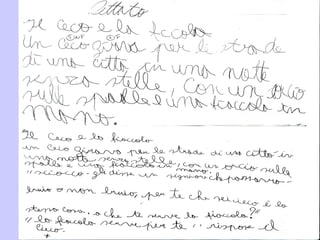 Dettato
Il Ceco e la ficcola
Un Ceco girava per le strade
di una città in una notte
senza stelle, con un orcio
sulle spalle e una fiaccola in
mano.
Il Ceco e la fiaccola
un ceco girava per le strade di una città in
una notte senza stelle, con un orcio sulla
spalle e una fiaccola in mano.
gli disse un signore che passava
non per te che sei ceco è lo
stessa cosa. o che te serve la fiaccola?
"la fiaccola serve per te". rispose il
Cieco.